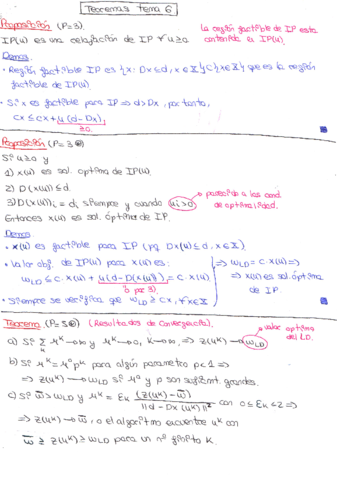 Teoremas tema 6
Proposición (P=3).
La región factible de IP esta
contenida en IP(u).
IP(u) es una relajación de IP ∀ u≥0.
Demos.
• Región factible IP es {x: Dx≤d, x∈X} ⊂ {x∈X} que es la región
factible de IP(u).
• Si x es factible para IP ⇒ d≥Dx, por tanto,
cx ≤ cx + u(d-Dx)
≥0.
Proposición (P=3)
Si u≥0 y
1) x(u) es sol. optima de IP(u).
2) D(x(u)) ≤ d.
3) D(x(u))i = di siempre y cuando ui>0
→ parecido a las cond.
de optimalidad.
Entonces x(u) es sol. óptima de IP.
Demos.
• x(u) es factible para IP (pq Dx(u)≤d, x∈X).
• Valor obj. de IP(u) para x(u) es:
ω_LD ≤ c·x(u) + u(d-D(x(u))) = c·x(u)
0 por 3).
⇒ ω_LD = c·x(u) ⇒
⇒ x(u) es sol. óptima
de IP.
• Siempre se verifica que ω_LD ≥ cx, ∀x∈X
Teorema (P=5) (Resultados de Convergencia).
→ valor óptimo
del LD.
a) Si Σ_k μ^k → ∞ y μ^k → 0, k→∞, ⇒ z(u^k) → ω_LD
b) Si μ^k = μ^0 p^k para algún parametro p<1 ⇒
⇒ z(u^k) → ω_LD si μ^0 y p son suficient. grandes.
c) Si ω̄ ≥ ω_LD y μ^k = ε_k (z(u^k) - ω̄) / ||d - Dx(u^k)||² con 0 ≤ ε_k < 2 ⇒
⇒ z(u^k) → ω̄, o el algoritmo encuentra u^k con
ω̄ ≥ z(u^k) ≥ ω_LD para un nº finito k.